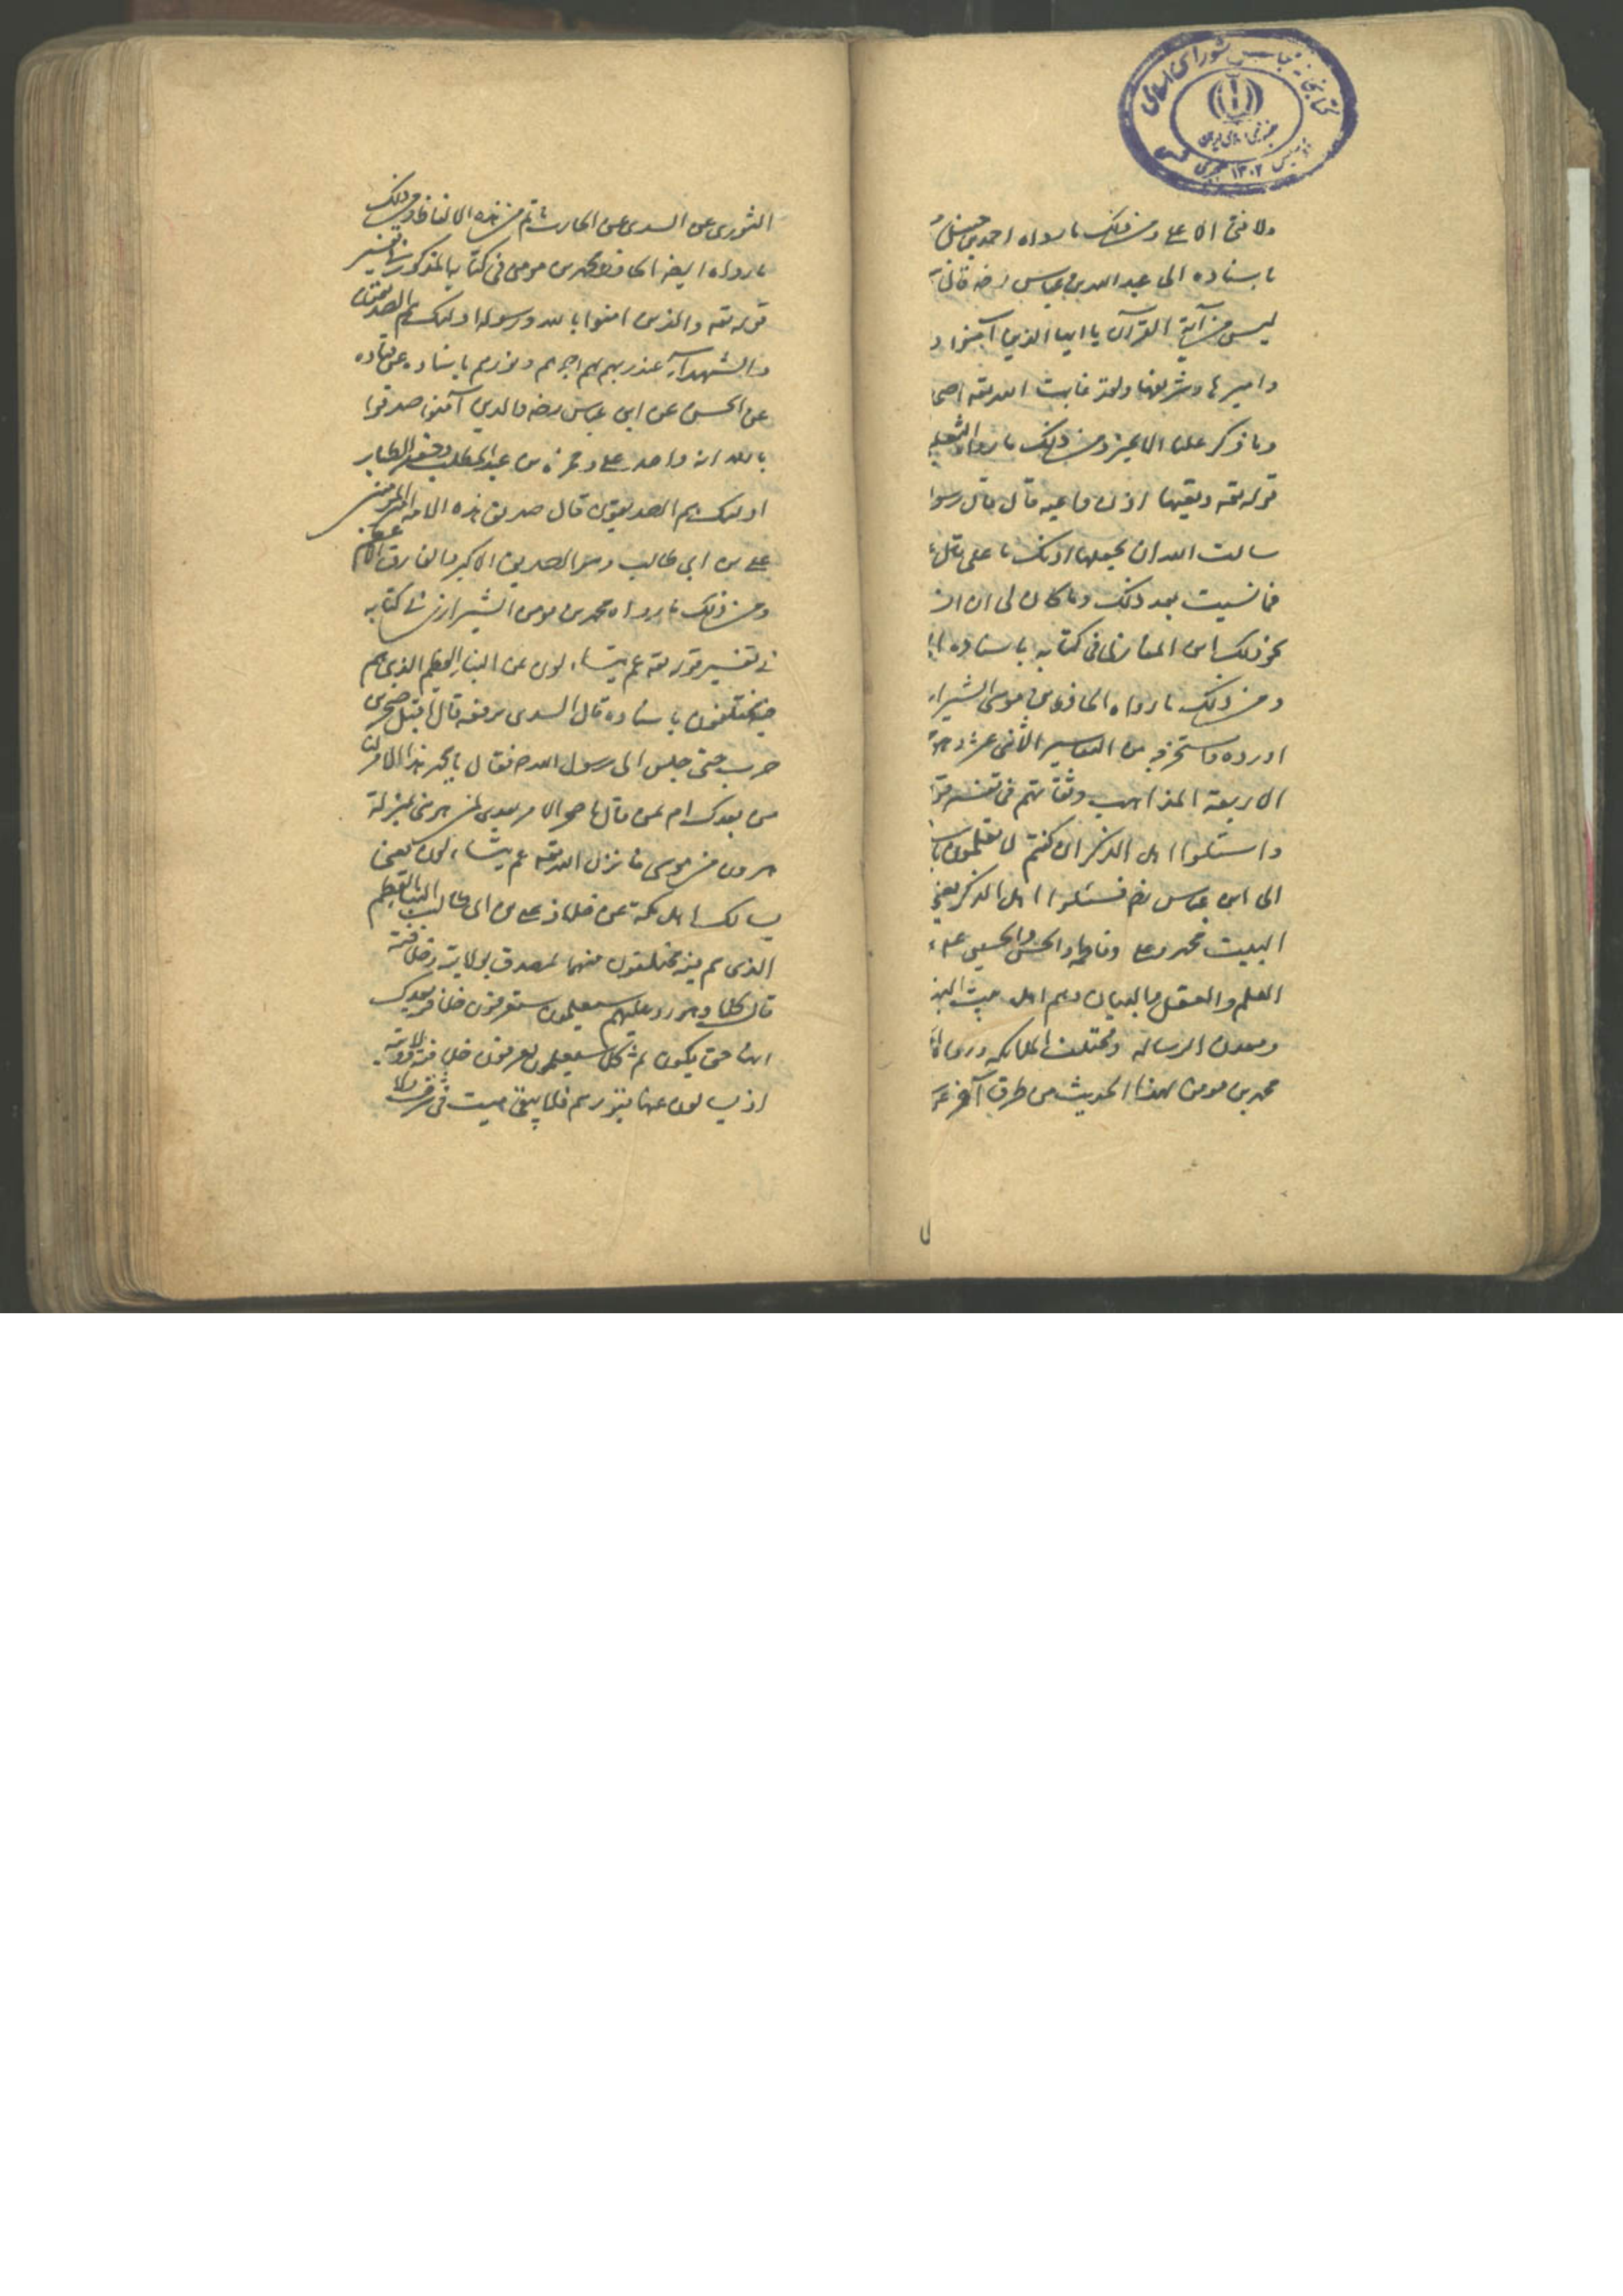 كتابخانه مجلس شورای اسلامی
جمهوری اسلامی ایران
تأسيس ١٣٠٢ هجری
ولا فتى الا علي ومن ذلك ما رواه احمد بن حنبل
باسناده الى عبد الله بن عباس رضه قال
ليس من آية القرآن يا ايها الذين آمنوا
واميرها وشريفها ولقد عاتب الله تعه اصحا
وما ذكر عليا الا بخير ومن ذلك ما رواه الثعلبي
قوله تعه وتعيها اذن واعيه قال قال رسو
سالت الله ان يجعلها اذنك يا علي قال
فما نسيت بعد ذلك وما كان لي ان ان
نحو ذلك ابن المغازلي في كتابه باسناده
ومن ذلك ما رواه الحافظ بن موسى الشيرا
اورده واستخرجه من التفاسير الاثنى عشر وهو
الاربعة المذاهب وثقاتهم في تفسير قو
واسئلوا اهل الذكر ان كنتم لا تعلمون با
الى ابن عباس رضه فسئلوا اهل الذكر يعني
البيت محمد وعلي وفاطمه والحسن والحسين
العلم والعقل والبيان وهم اهل بيت النبو
ومعدن الرسالة ومختلف الملائكه وروا
محمد بن مومن هذا الحديث من طرق آخر عن
الثوري عن السدي عن الحارث باتم من هذه الالفاظ ومن ذلك
ما رواه ايضه الحافظ محمد بن مومن في كتابه المذكور في تفسير
قوله تعه والذين امنوا بالله ورسوله اولئك هم الصديقون
والشهدآء عند ربهم لهم اجرهم ونورهم باسناده عن قتاده
عن الحسن عن ابن عباس رضه والذين آمنوا صدقوا
بالله انه واحد علي وحمزة بن عبد المطلب وجعفر الطيار
اولئك هم الصديقون قال صديق هذه الامه امير المؤمنين
علي بن ابي طالب وهو الصديق الاكبر والفاروق الاعظم
ومن ذلك ما رواه محمد بن مومن الشيرازي في كتابه
في تفسير قوله تعه عم يتساءلون عن النبإ العظيم الذي هم
فيه مختلفون باسناده قال السدي يرفعه قال اقبل صخر بن
حرب حتى جلس الى رسول الله ص فقال يا محمد هذا الامر لنا
من بعدك ام لمن قال يا صخر الامر بعدي لمن هو مني بمنزلة
هرون من موسى فانزل الله تعه عم يتساءلون يعني
يسالك اهل مكة عن خلافة علي بن ابي طالب النبا العظيم
الذي هم فيه مختلفون منهم المصدق بولايته وخلافته
قال كلا وهو رد عليهم سيعلمون ستعرفون خلافته بعدك
انها حق يكون ثم كلا سيعلمون يعرفون خلافته وولايته
اذ يسالون عنها في قبورهم فلا يبقى ميت في شرق ولا